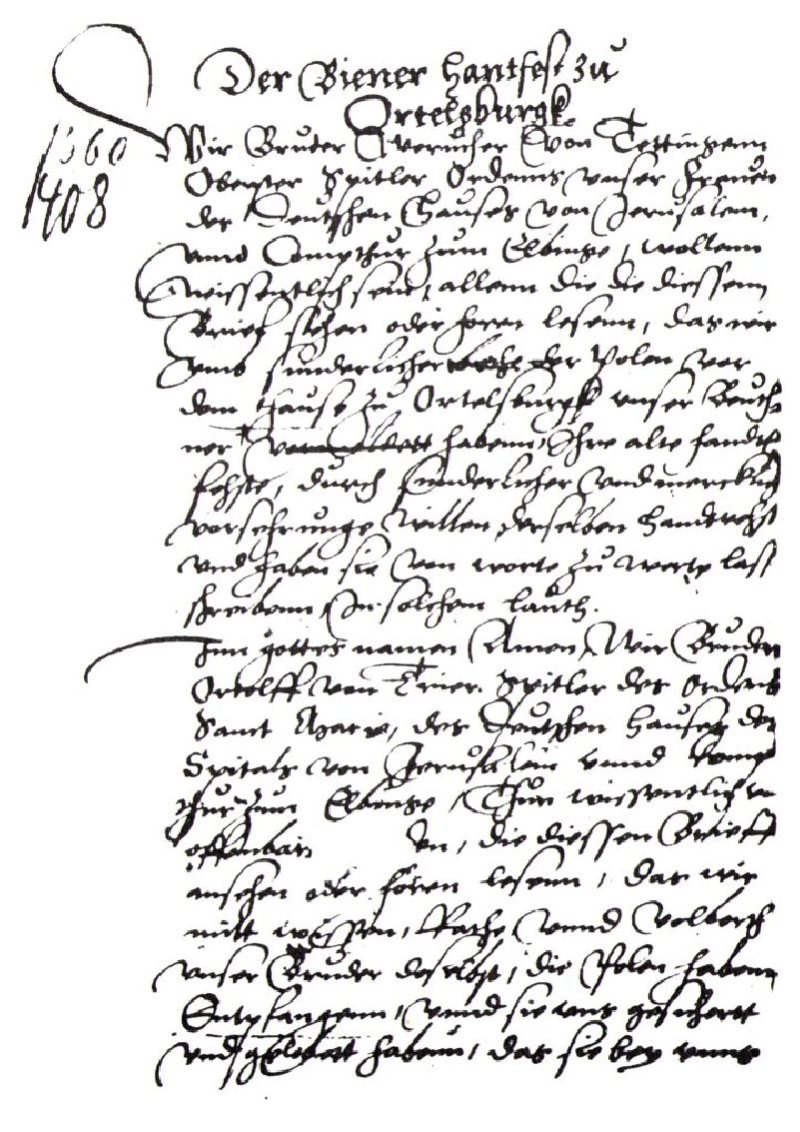 Der Biener hantfest zu
Ortelsburgk.
1360
1408
Wir Bruder von Tettingenn
Oberster Spitler Ordenns unser Frauen
des Deutschen Hauses von Jerusalem,
unnd Compthur zum Elbinge, wollenn
wissentlich sein, allenn die die diessenn
Brieff sehen oder horen lesenn, das wir
umb sunderlicher der Polen vor
dem Hause zu Ortelsburgk unser Beuth
ner habenn, Ihre alte handt
feste, durch sunderlicher unnd mercklich
vorsehrunge willen, derselben handtvest
und haben sie von worte zu worte lass
schreibenn, In solchem lauth.
Inn gottes namen Amen, Wir Bruder
Ortolff von Trier. Spitler des Ordens
Sanct Marie, des Deutschen Hauses des
Spitals von Jerusalem unnd Komp
thur zum Elbinge, Thun wissentlich
offenbar en, die diessen Brieff
ansehen oder horen lesenn, das wir
mitt wissen, Rathe unnd Volborth
unser Bruder doselbst, die Polen habenn
Entpfangenn, unnd sie uns gesichert
und gelobett habenn, das sie bey unns